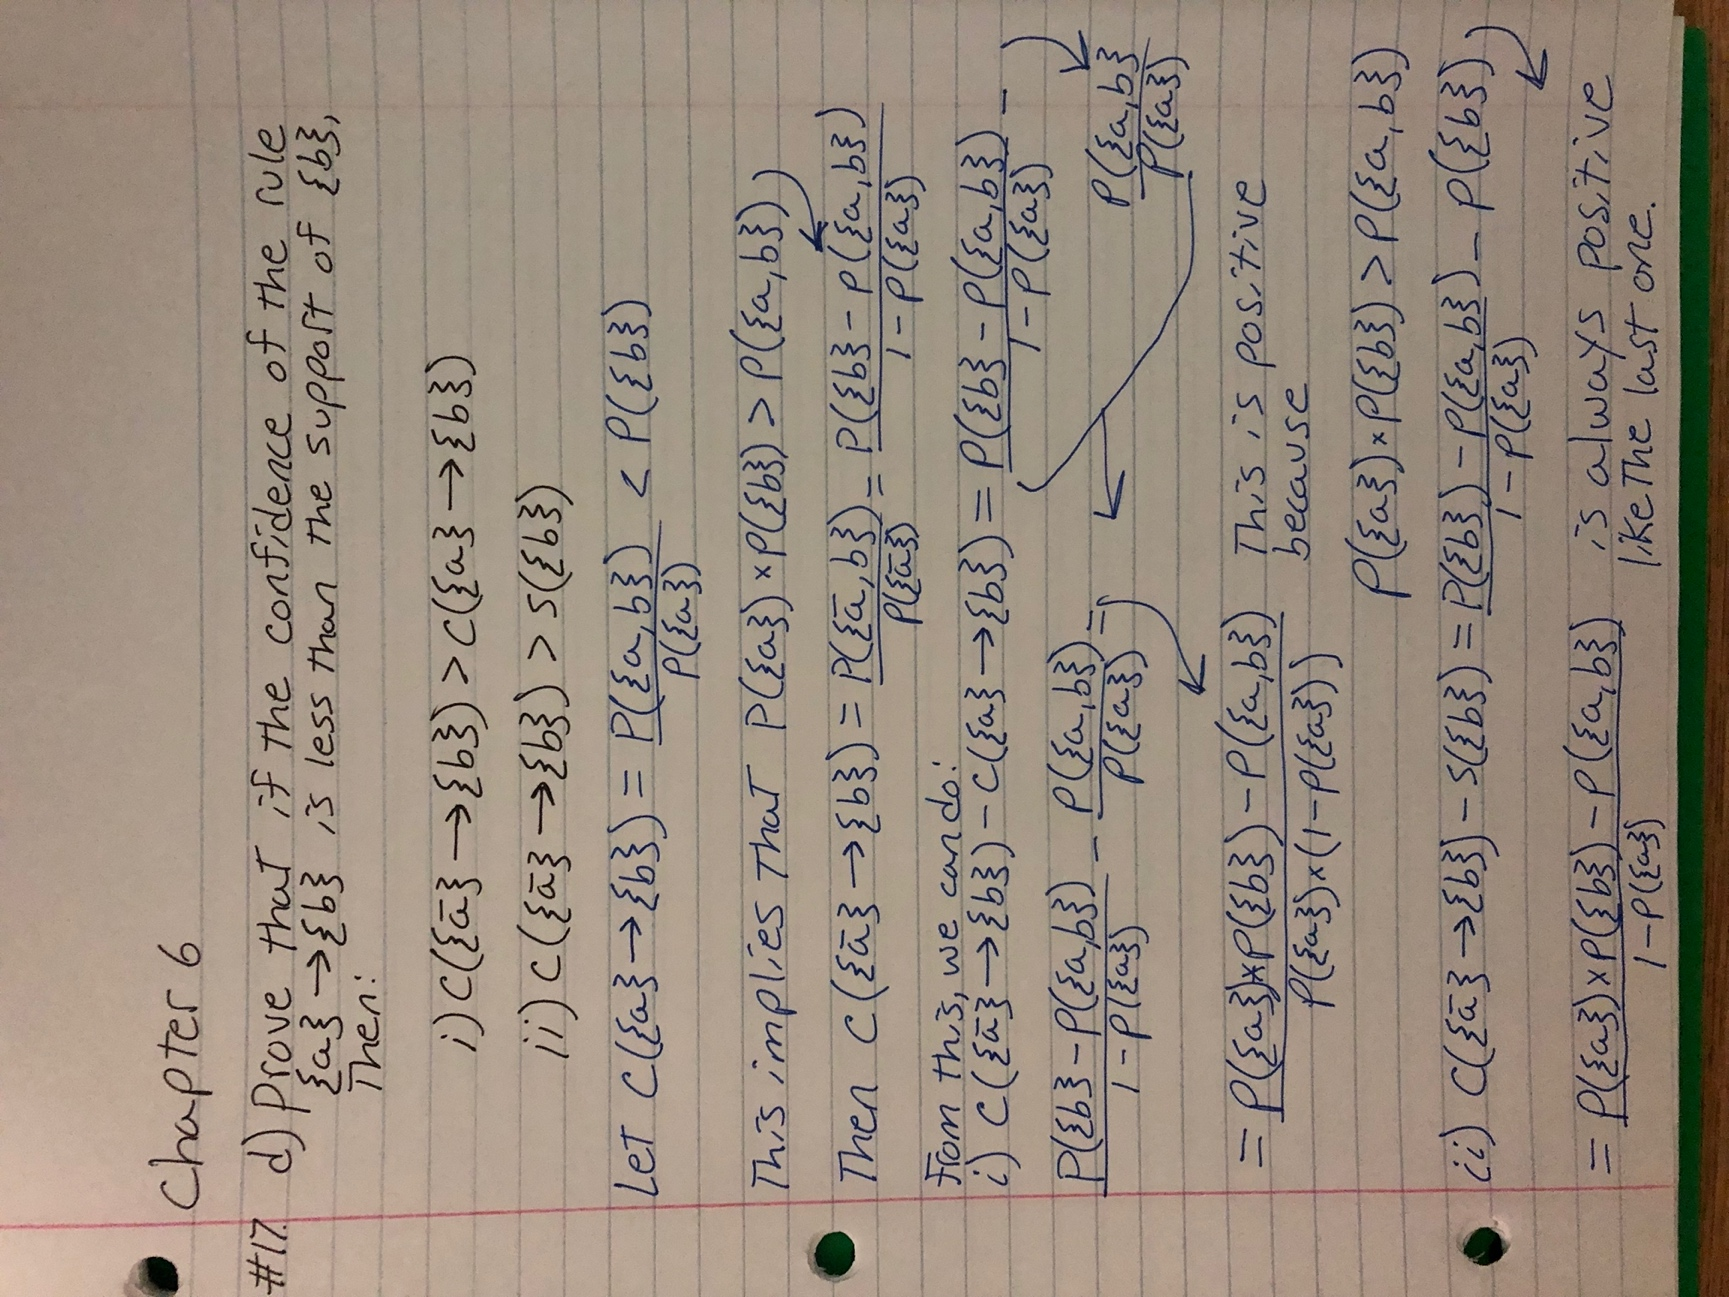 Chapter 6
#17. d) Prove that if the confidence of the rule
{a} → {b} is less than the support of {b},
Then:
i) C({ā} → {b}) > C({a} → {b})
ii) C({ā} → {b}) > S({b})
Let C({a} → {b}) = P({a,b}) / P({a}) < P({b})
This implies That P({a}) × P({b}) > P({a,b})
Then C({ā} → {b}) = P({ā,b}) / P({ā}) = P({b} - P({a,b}) / 1 - P({a})
From this, we can do:
i) C({ā} → {b}) - C({a} → {b}) = P({b} - P({a,b}) / 1 - P({a}) - P({a,b} / P({a})
P({b} - P({a,b}) / 1 - P({a}) - P({a,b}) / P({a}) =
= P({a}) × P({b}) - P({a,b}) / P({a}) × (1 - P({a})) This is positive
because
P({a}) × P({b}) > P({a,b})
ii) C({ā} → {b}) - S({b}) = P({b}) - P({a,b}) / 1 - P({a}) - P({b})
= P({a}) × P({b}) - P({a,b}) / 1 - P({a}) is always positive
like The last one.